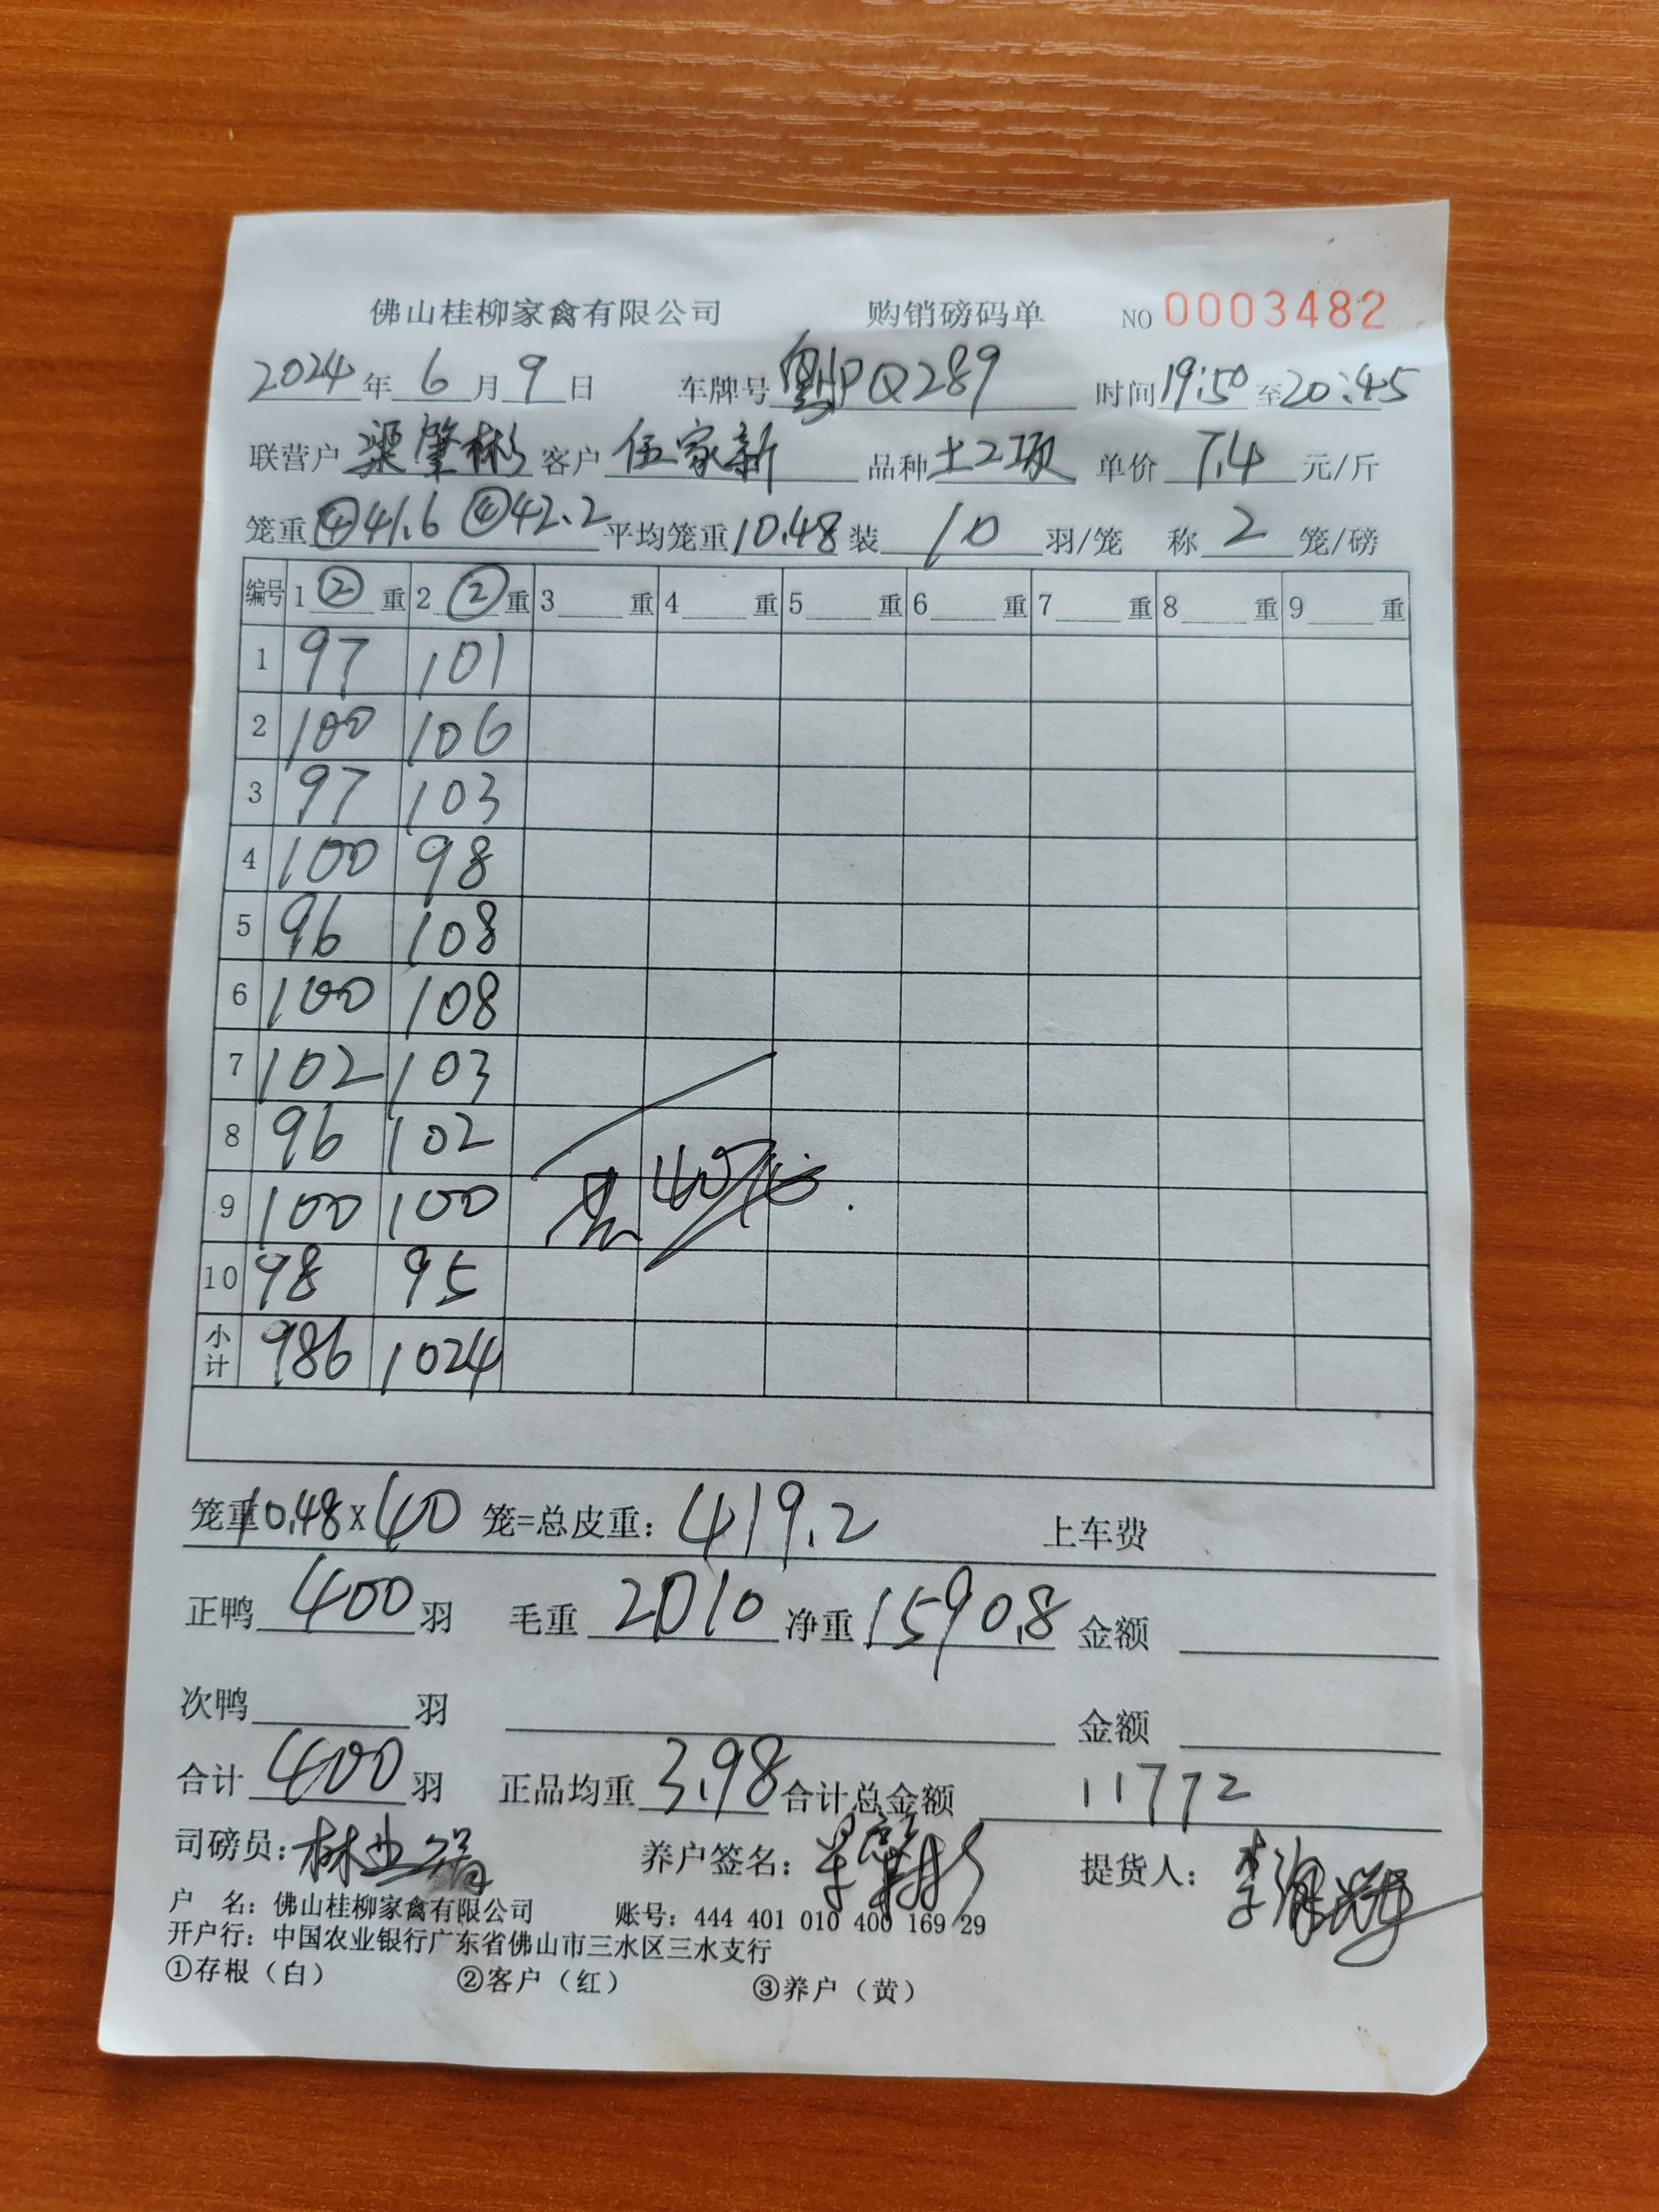 佛山桂柳家禽有限公司 购销磅码单 NO 0003482
2024年6月9日 车牌号粤HPQ289 时间19:50至20:45
联营户梁肇彬 客户伍家新 品种土2项 单价7.4元/斤
笼重④41.6 ④42.2平均笼重10.48装10羽/笼 称2笼/磅
编号 1②重 2②重 3重 4重 5重 6重 7重 8重 9重
1 97 101
2 100 106
3 97 103
4 100 98
5 96 108
6 100 108
7 102 103
8 96 102
9 100 100
10 98 95
共40笼
小计 986 1024
笼重10.48X40笼=总皮重：419.2 上车费
正鸭400羽 毛重2010净重1590.8金额
次鸭羽 金额
合计400羽 正品均重3.98合计总金额11772
司磅员： 养户签名：梁肇彬 提货人：
户 名：佛山桂柳家禽有限公司 账号：444 401 010 400 169 29
开户行：中国农业银行广东省佛山市三水区三水支行
①存根（白） ②客户（红） ③养户（黄）